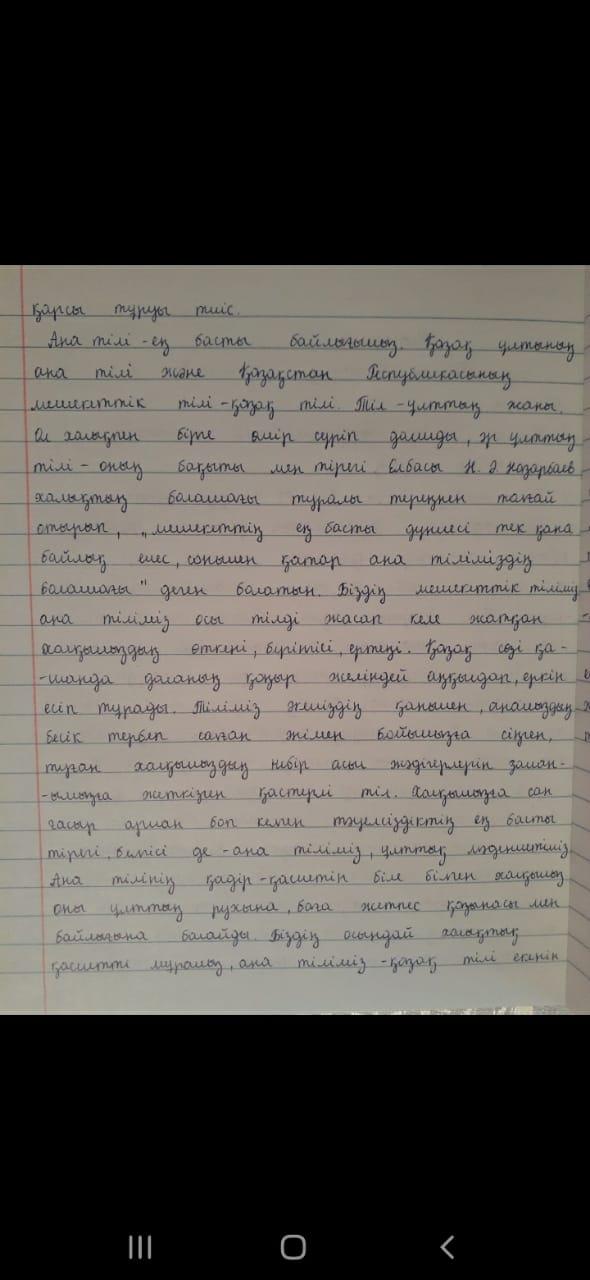 қарсы тұруы тиіс.
Ана тілі - ең басты байлығымыз. Қазақ ұлтының
ана тілі және Қазақстан Республикасының
мемлекеттік тілі - қазақ тілі. Тіл - ұлттың жаны.
Ол халықпен бірге өмір сүріп дамиды, әр ұлттың
тілі - оның бақыты мен тірегі Елбасы Н. Ә Назарбаев
халықтың болашағы туралы тереңнен толғай
отырып, „мемлекеттің ең басты дүниесі тек қана
байлық емес, сонымен қатар ана тіліміздің
болашағы" деген болатын. Біздің мемлекеттік тіліміз
ана тіліміз осы тілді жасап келе жатқан
халқымыздың өткені, бүгінгісі, ертеңі. Қазақ сөзі қа-
-шанда даланың қоңыр желіндей аңқылдап, еркін
есіп тұрады. Тіліміз әкеміздің қанымен, анамыздың
бесік тербеп салған әнімен бойымызға сіңген,
туған халқымыздың небір асыл жәдігерлерін заман-
-ымызға жеткізген қастерлі тіл. Халқымызға сан
ғасыр арман боп келген тәуелсіздіктің ең басты
тірегі, белгісі де - ана тіліміз, ұлттық мәдениетіміз
Ана тілінің қадір-қасиетін біле білген халқымыз
оны ұлттың рухына, баға жетпес қазынасы мен
байлығына балайды. Біздің осындай халықтық
қасиетті мұрамыз, ана тіліміз - қазақ тілі екенін